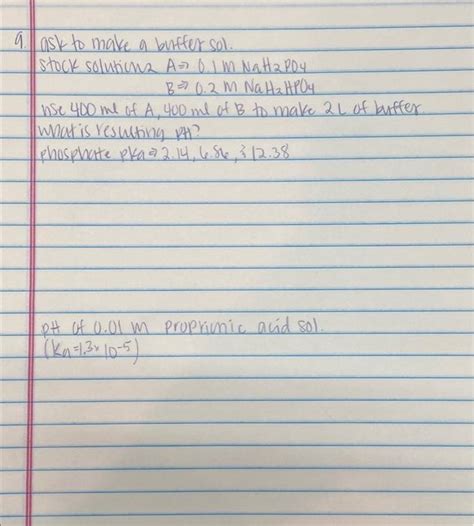 9. ask to make a buffer sol.
stock solutions A⇒ 0.1 M NaH2PO4
B⇒ 0.2 M NaH2HPO4
use 400 ml of A, 400 ml of B to make 2 L of buffer
what is resulting pH?
phosphate pka⇒ 2.14, 6.86, & 12.38
pH of 0.01 m proprionic acid sol.
(Ka=1.3x10-5)